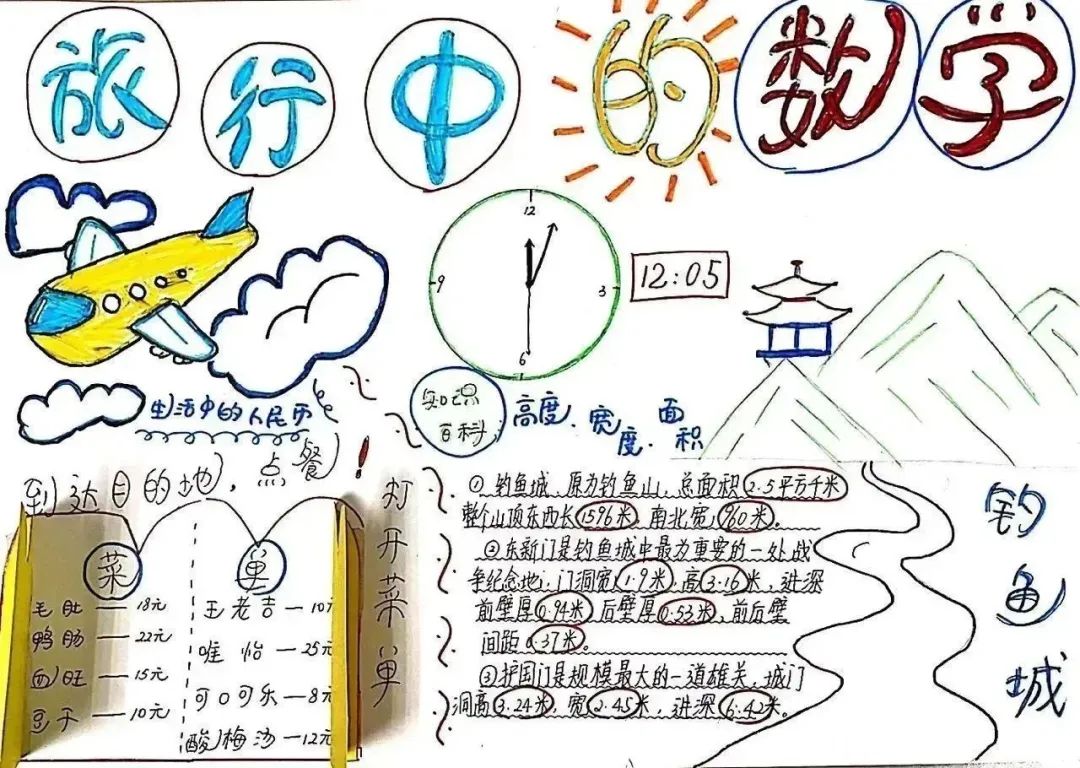 旅行中的数学
12
9
3
6
12:05
生活中的人民币
知识
百科
高度、宽度、面积
到达目的地，点餐！
菜单
毛肚——18元
鸭肠——22元
血旺——15元
豆干——10元
王老吉—10元
唯怡—25元
可口可乐—8元
酸梅汤—12元
打开菜单
①钓鱼城，原为钓鱼山，总面积2.5平方千米
整个山顶东西长1596米，南北宽960米。
②东新门是钓鱼城中最为重要的一处战
争纪念地，门洞宽1.9米，高3.16米，进深
前壁厚0.94米，后壁厚0.53米，前后壁
间距0.37米。
③护国门是规模最大的一道雄关，城门
洞高3.24米，宽2.45米，进深6.42米。
钓鱼城